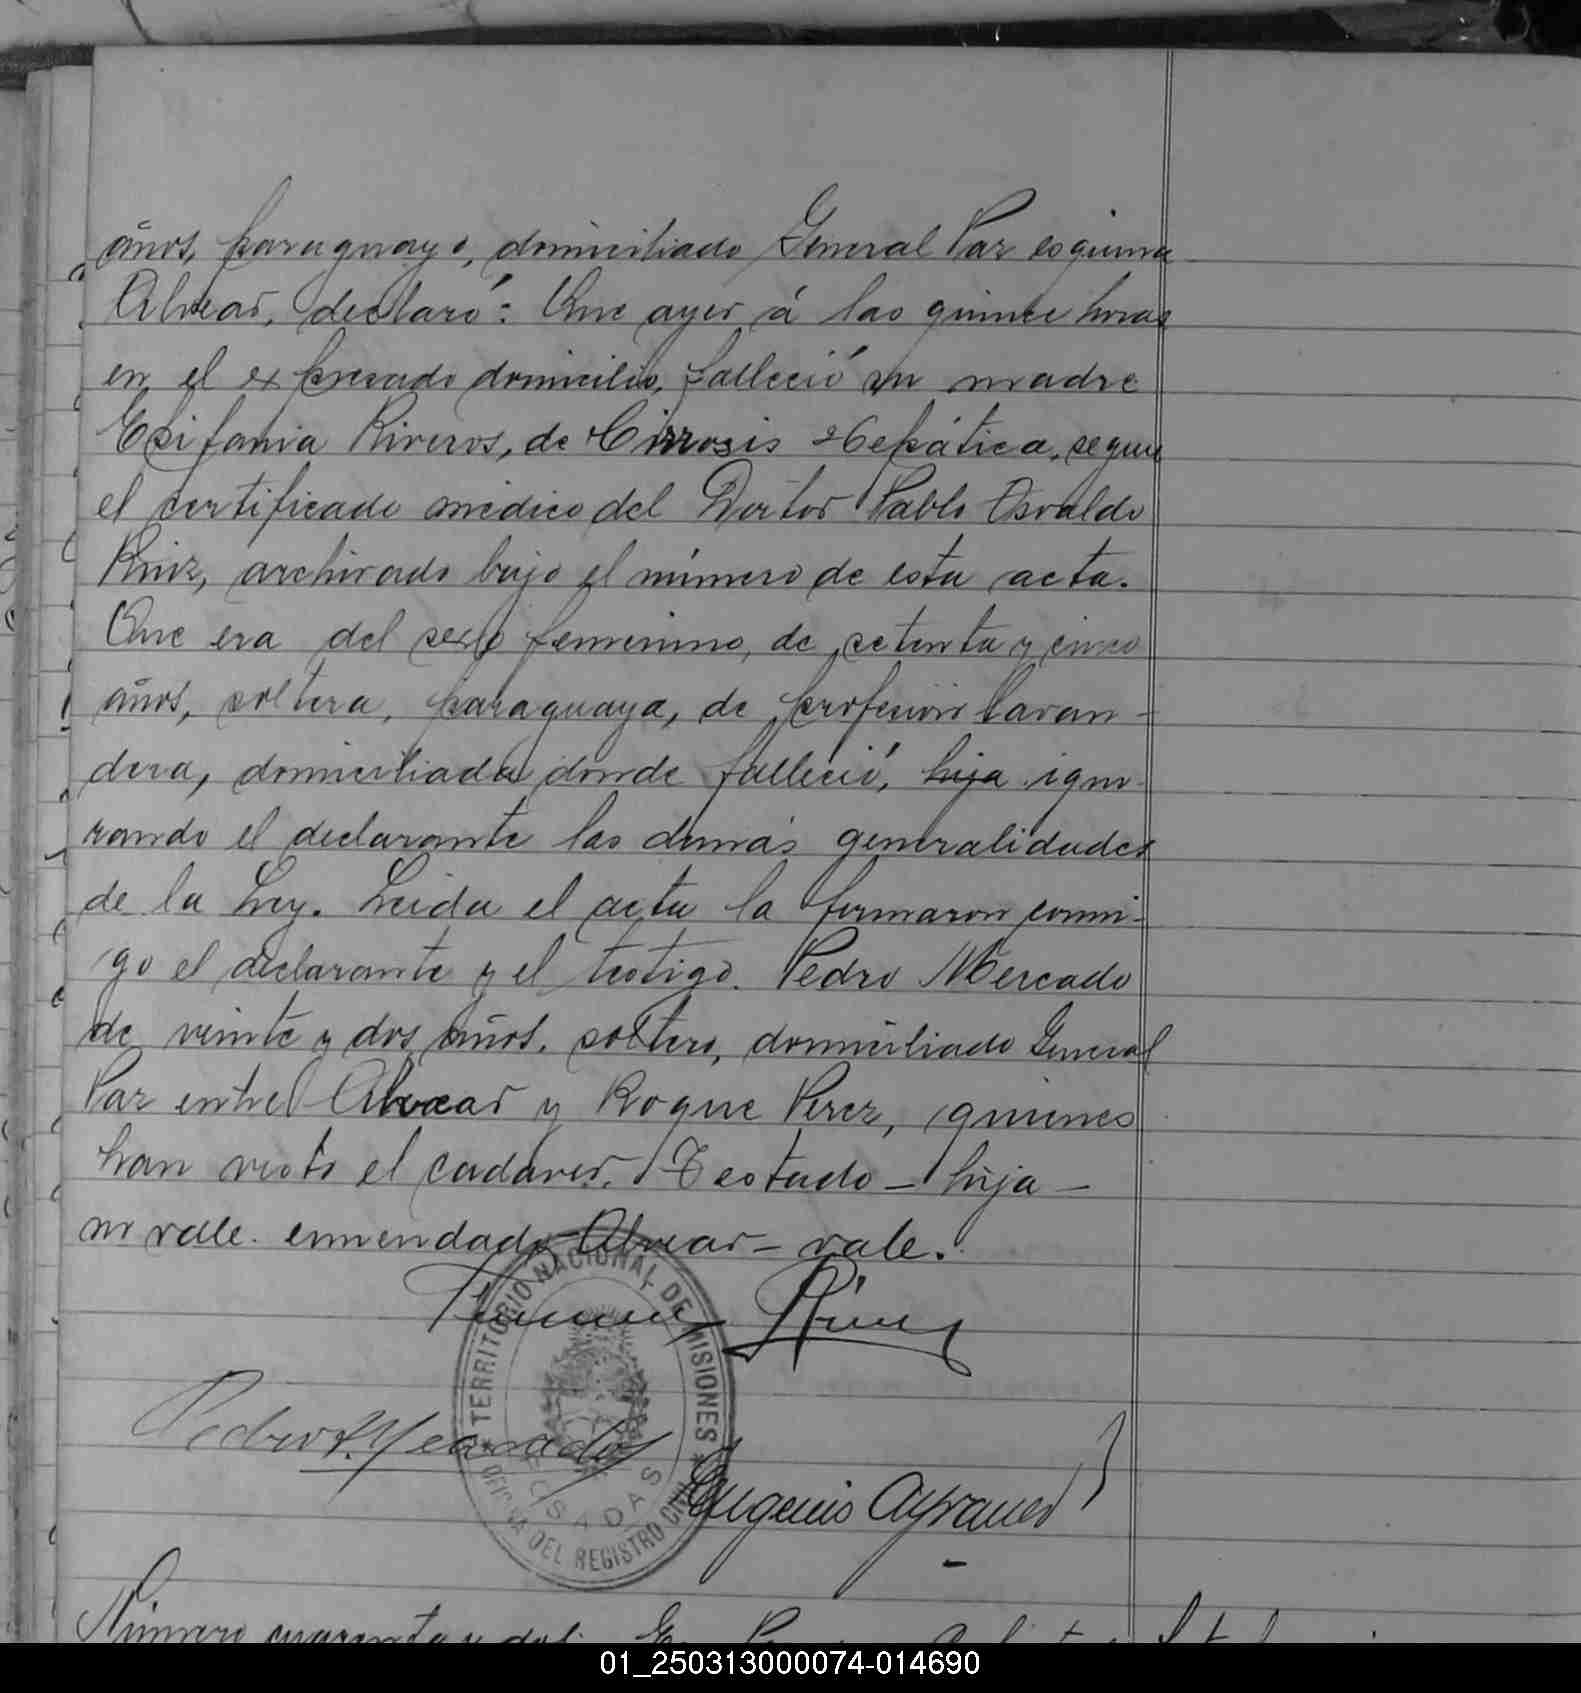 años, paraguayo, domiciliado General Paz esquina
Alvear, declaró: Que ayer á las quince horas
en el expresado domicilio, falleció su madre
Epifania Riveros, de Cirrosis Hepática, segun
el certificado médico del Doctor Pablo Osvaldo
Ruiz, archivado bajo el número de esta acta.
Que era del sexo femenino, de setenta y cinco
años, soltera, paraguaya, de profesión lavan-
dera, domiciliada donde falleció, hija igno-
rando el declarante las demás generalidades
de la Ley. Leida el acta la firmaron conmi-
go el declarante y el testigo. Pedro Mercado
de veinte y dos años, soltero, domiciliado General
Paz entre Alvear y Roque Perez, quienes
han visto el cadaver. Testado - hija -
no vale. enmendado - Alvear - vale.
TERRITORIO NACIONAL DE MISIONES
POSADAS
OFICINA DEL REGISTRO CIVIL
Pedro Mercado
Eugenio
Número cuarenta y dos. En
01_250313000074-014690